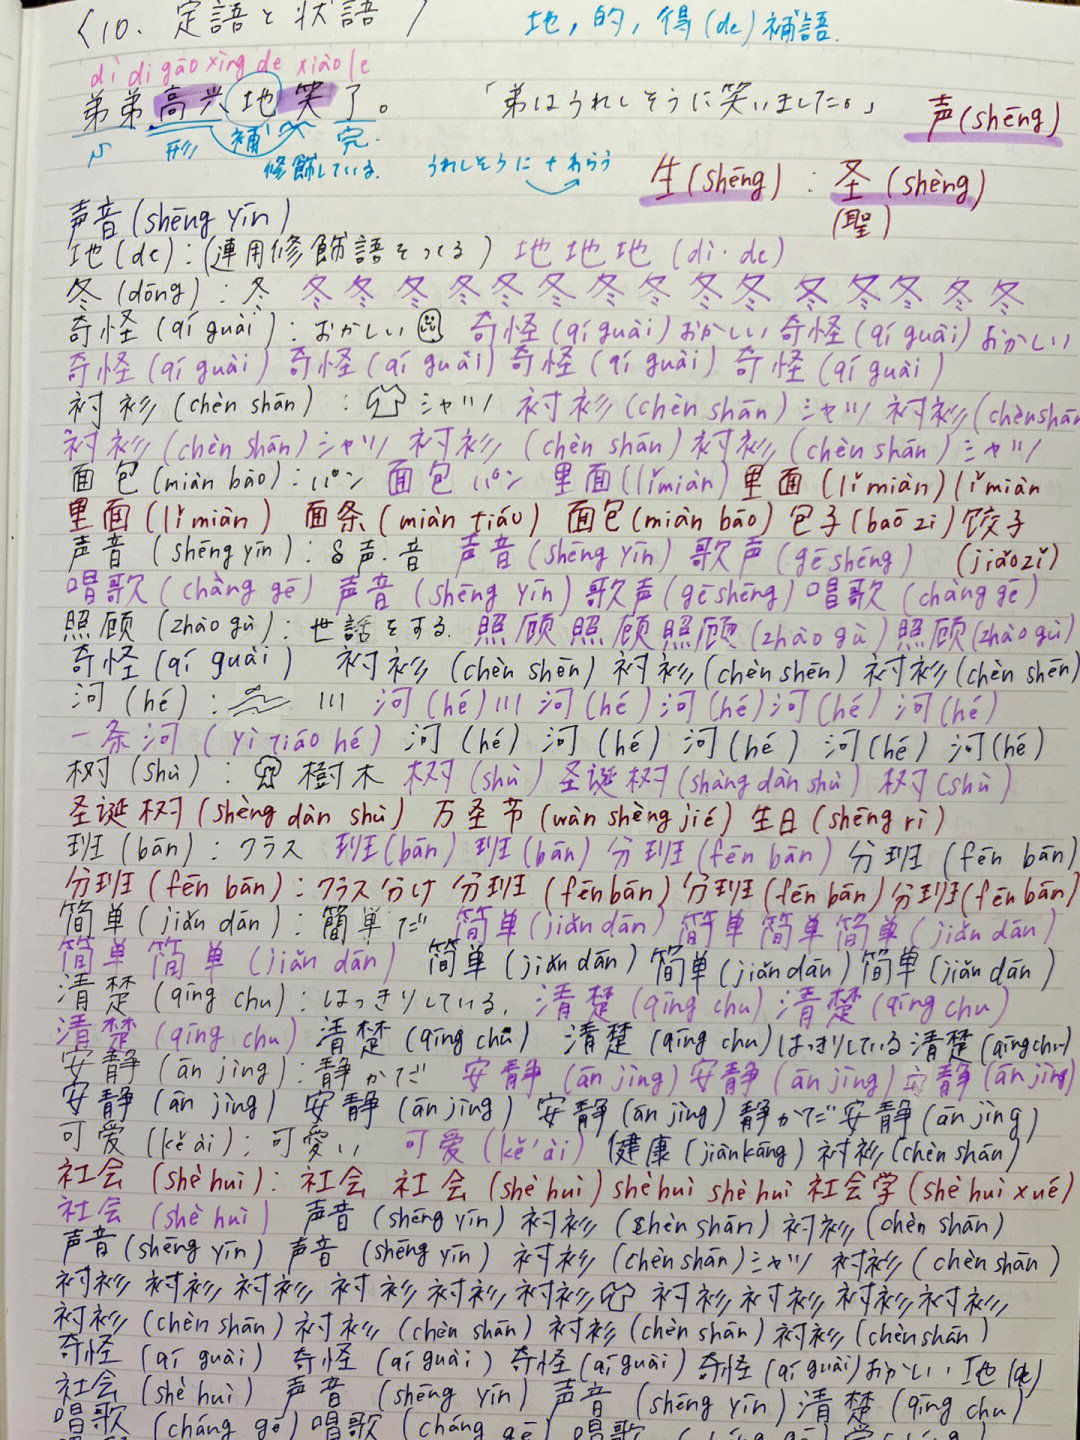 〈10. 定語と状語 〉
地, 的, 得(de)補語.
dì di gāo xìng de xiào le
弟弟高兴地笑了。 「弟はうれしそうに笑いました。」 声(shēng)
形 補 完.
修飾している. うれしそうに + わらう
生(shēng) : 圣 (shèng)
(聖)
声音(shēng yīn)
地(de):(連用修飾語をつくる) 地地地 (dì·de)
冬 (dōng) : 冬 冬 冬 冬 冬 冬 冬 冬 冬 冬 冬 冬 冬 冬 冬 冬
奇怪 (qí guài) : おかしい 奇怪 (qí guài) おかしい 奇怪 (qí guài) おかしい
奇怪 (qí guài) 奇怪 (qí guài) 奇怪 (qí guài) 奇怪 (qí guài)
衬衫 (chèn shān) : シャツ 衬衫(chèn shān)シャツ 衬衫(chènshān
衬衫(chèn shān)シャツ 衬衫 (chèn shān) 衬衫 (chèn shān) シャツ
面包 (miàn bāo) : パン 面包 パン 里面(lǐmiàn) 里面 (lǐ miàn) lǐ miàn
里面 (lǐ miàn) 面条 (miàn tiáo) 面包(miàn bāo) 包子(baō zi) 饺子
声音 (shēng yīn) : 声.音 声音 (shēng yīn) 歌声 (gē shēng) (jiǎozǐ)
唱歌(chàng gē) 声音 (shēng yīn) 歌声(gē shēng) 唱歌 (chàng gē)
照顾 (zhào gù) : 世話をする. 照顾 照顾照顾(zhào gù) 照顾(zhào gù)
奇怪 (qí guài) 衬衫 (chèn shēn) 衬衫(chèn shēn) 衬衫 (chèn shēn)
河 (hé) : 川 河(hé)川 河(hé)河(hé)河(hé) 河(hé)
一条河 (yì tiáo hé) 河 (hé) 河 (hé) 河(hé) 河(hé) 河(hé)
树 (shù) : 樹木 树(shù) 圣诞树(shàng dàn shù) 树(shù)
圣诞树(shèng dàn shù) 万圣节(wàn shèng jié) 生日(shēng rì)
班(bān) : クラス 班(bān) 班(bān) 分班(fēn bān) 分班 (fēn bān)
分班(fēn bān) : クラス分け 分班 (fēnbān) 分班(fēn bān)分班(fēn bān)
简单(jiǎn dān) : 簡単だ 简单(jiǎn dān) 简单 简单 简单(jiǎn dān)
简单 简单 (jiǎn dān) 简单(jiǎn dān) 简单(jiǎn dān)简单(jiǎn dān)
清楚 (qīng chu) : はっきりしている. 清楚(qīng chu) 清楚 (qīng chu)
清楚 (qīng chu) 清楚(qīng chu) 清楚 (qīng chu) はっきりしている 清楚 (qīngchu)
安静 (ān jìng) : 静かだ 安静 (ān jìng) 安静 (ān jìng) 安静(ān jìng)
安静 (ān jìng) 安静(ān jìng) 安静(ān jìng) 静かだ 安静(ān jìng)
可爱(kě ài) : 可愛い 可爱 (kě'ài) 健康(jiànkāng) 衬衫(chèn shān)
社会 (shè huì) : 社会 社会 (shè huì) shè huì shè huì 社会学(shè huì xué)
社会 (shè huì) 声音 (shēng yīn) 衬衫 (chèn shān) 衬衫 (chèn shān)
声音(shēng yīn) 声音 (shēng yīn) 衬衫 (chèn shān) シャツ 衬衫 (chèn shān)
衬衫 衬衫 衬衫 衬衫 衬衫 衬衫 衬衫 衬衫 衬衫 衬衫
衬衫 (chèn shān) 衬衫 (chèn shān) 衬衫(chèn shān) 衬衫(chèn shān)
奇怪 (qí guài) 奇怪 (qí guài) 奇怪(qí guài) 奇怪 (qí guài) おかしい. 地 (de)
社会 (shè huì) 声音 (shēng yīn) 声音 (shēng yīn) 清楚 (qīng chu)
唱歌 (cháng gē) 唱歌 (cháng gē) 唱歌